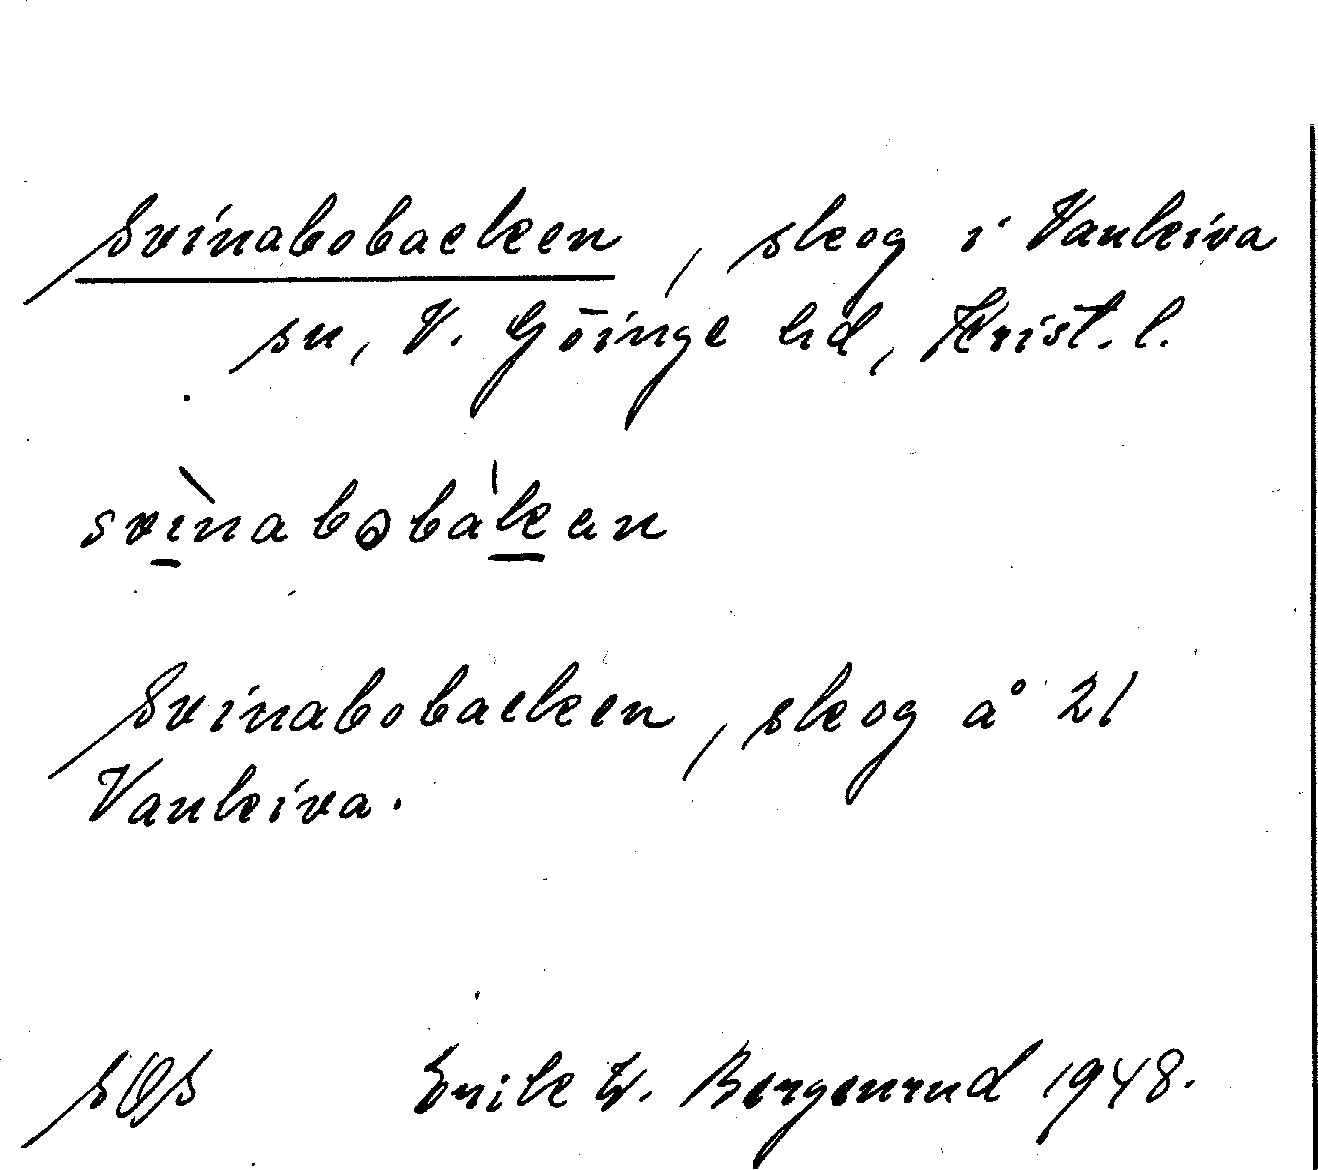 Svinabobacken, skog i Vankiva
sn, V. Göinge hd, Krist. l.
svìnabobák̲an
Svinabobacken, skog å 21
Vankiva.
SOS Erik W. Bergenrud 1948.